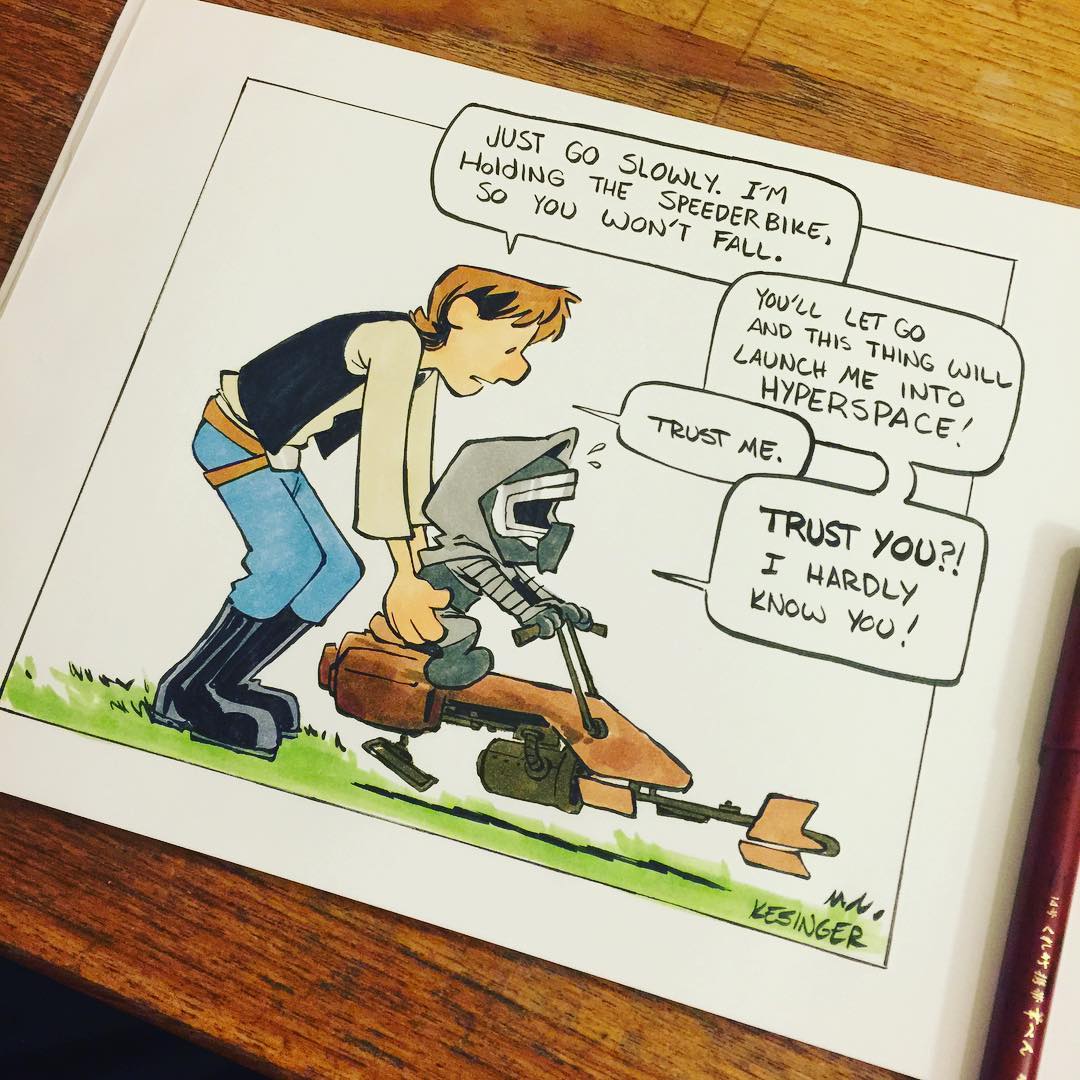 JUST GO SLOWLY. I'M
HOLdING THE SPEEDER BIKE,
SO YOU WON'T FALL.
YOU'LL LET GO
AND THIS THING WILL
LAUNCH ME INTO
HYPERSPACE!
TRUST ME.
TRUST YOU?!
I HARDLY
KNOW YOU!
KESINGER